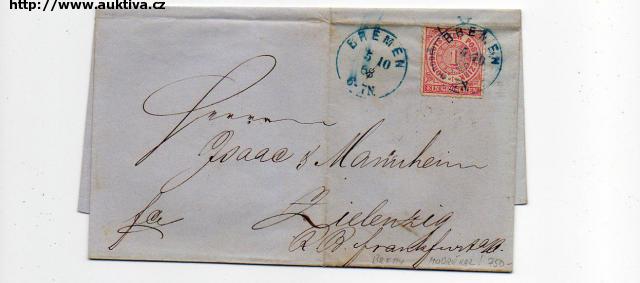 http://www.auktiva.cz
BREMEN
5 10
68
6-7N.
BREMEN
1
Herren
Isaac & Mannheim
fco Zielenzig
R. B. Frankfurt a/O.
MODRÝ RAZ. 750-